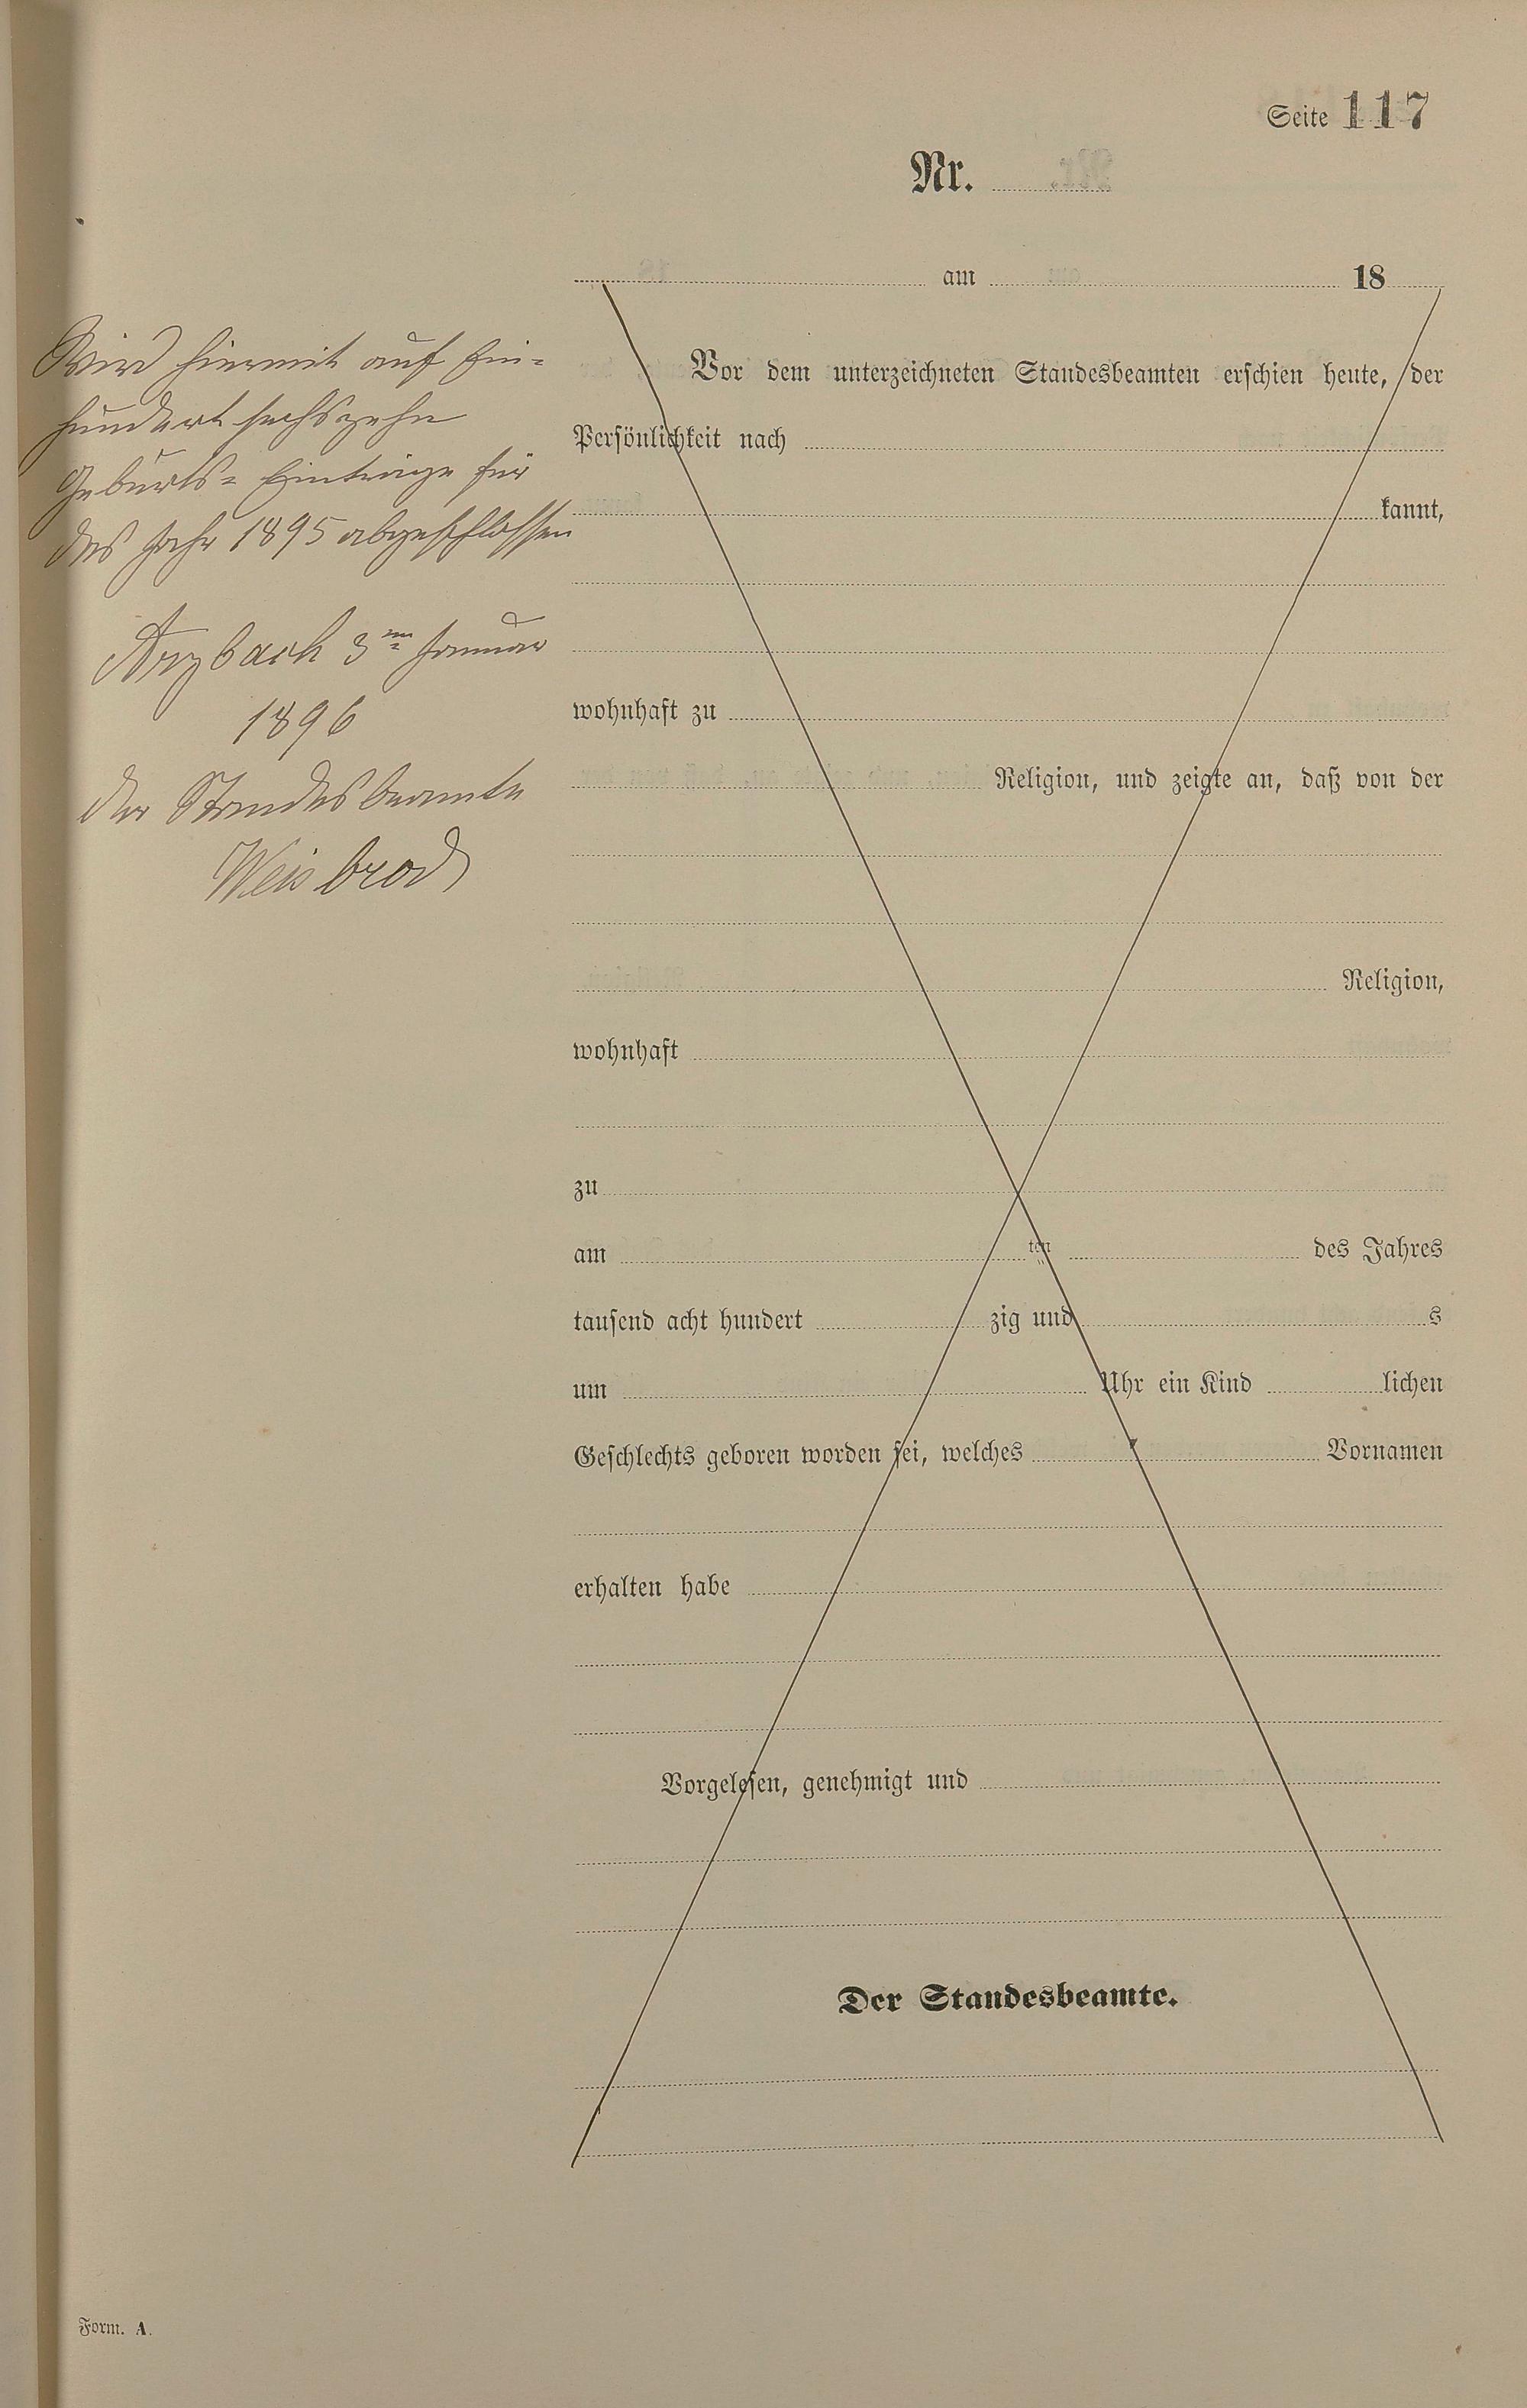 Seite 117
Nr.
am 18
Wird hiermit auf Ein-
hundert sechszehn
Geburts- Einträge für
das Jahr 1895 abgeschlossen
Arzbach 3ten Januar
1896
Der Standesbeamte
Weisbrod
Vor dem unterzeichneten Standesbeamten erschien heute, der
Persönlichkeit nach
kannt,
wohnhaft zu
Religion, und zeigte an, daß von der
Religion,
wohnhaft
zu
am ten des Jahres
tausend acht hundert zig und s
um Uhr ein Kind lichen
Geschlechts geboren worden sei, welches Vornamen
erhalten habe
Vorgelesen, genehmigt und
Der Standesbeamte.
Form. A.